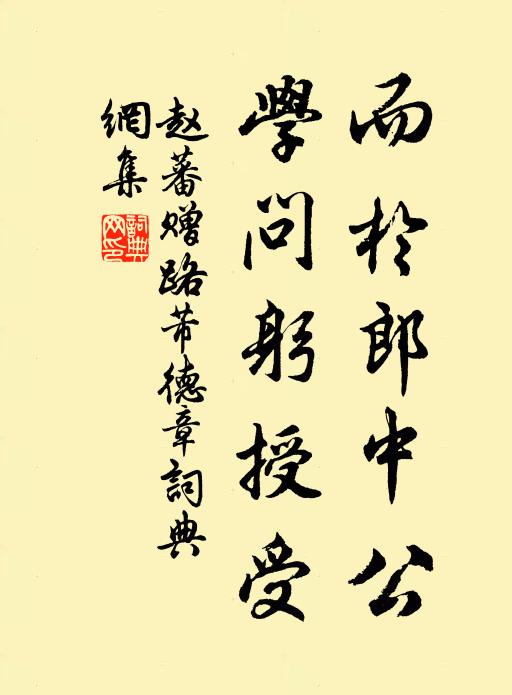 而於郎中公
學問躬授受
赵蕃赠路芾德章詞典
網集
詞典網印